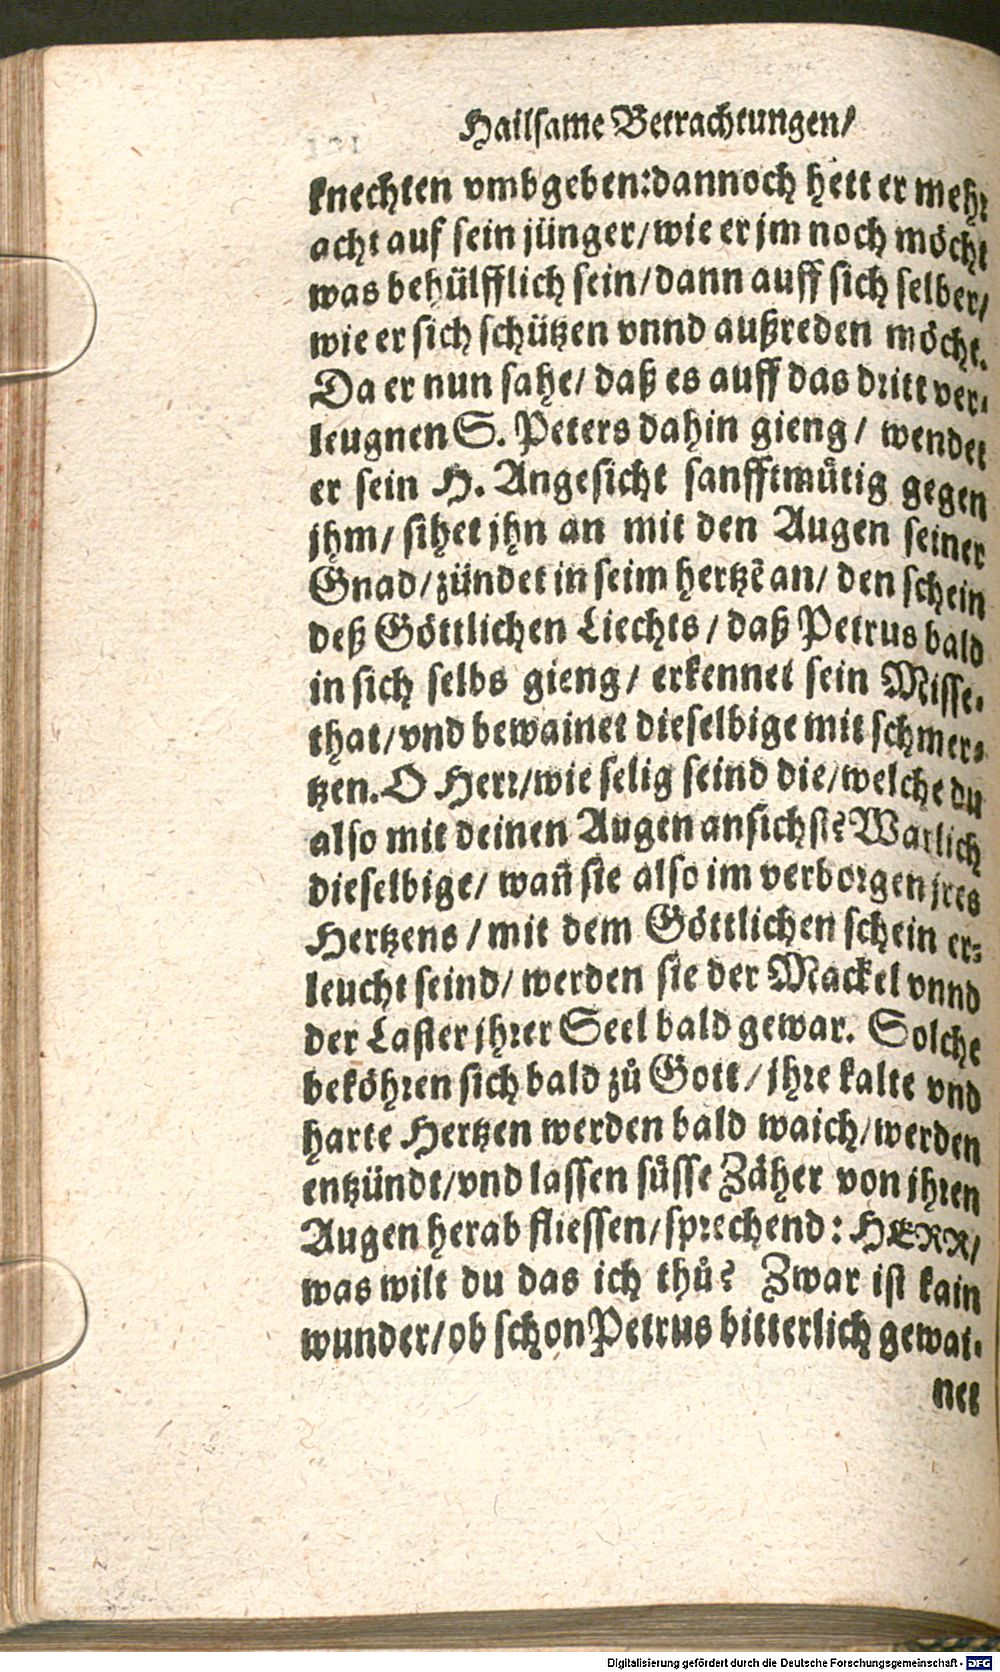 Hailsame Betrachtungen/
knechten vmbgeben:dannoch hett er mehr
acht auf sein jünger/wie er jm noch möcht
was behülfflich sein/dann auff sich selber/
wie er sich schützen vnnd außreden möcht.
Da er nun sahe/ daß es auff das dritt ver-
leugnen S. Peters dahin gieng/ wendet
er sein H. Angesicht sanfftmuͤtig gegen
jhm/ sihet jhn an mit den Augen seiner
Gnad/zündet in seim hertzẽ an/ den schein
deß Göttlichen Liechts/ daß Petrus bald
in sich selbs gieng/ erkennet sein Misse-
that/vnd bewainet dieselbige mit schmer-
tzen.O Herr/wie selig seind die/welche du
also mit deinen Augen ansichst? Warlich
dieselbige/ wañ sie also im verborgen jres
Hertzens/mit dem Göttlichen schein er-
leucht seind/ werden sie der Mackel vnnd
der Laster jhrer Seel bald gewar. Solche
beköhren sich bald zů Gott/jhre kalte vnd
harte Hertzen werden bald waich/werden
entzündt/vnd lassen suͤsse Zäher von jhren
Augen herab fliessen/sprechend: HERR/
was wilt du das ich thů? Zwar ist kain
wunder/ob schon Petrus bitterlich gewai-
net
Digitalisierung gefördert durch die Deutsche Forschungsgemeinschaft - DFG